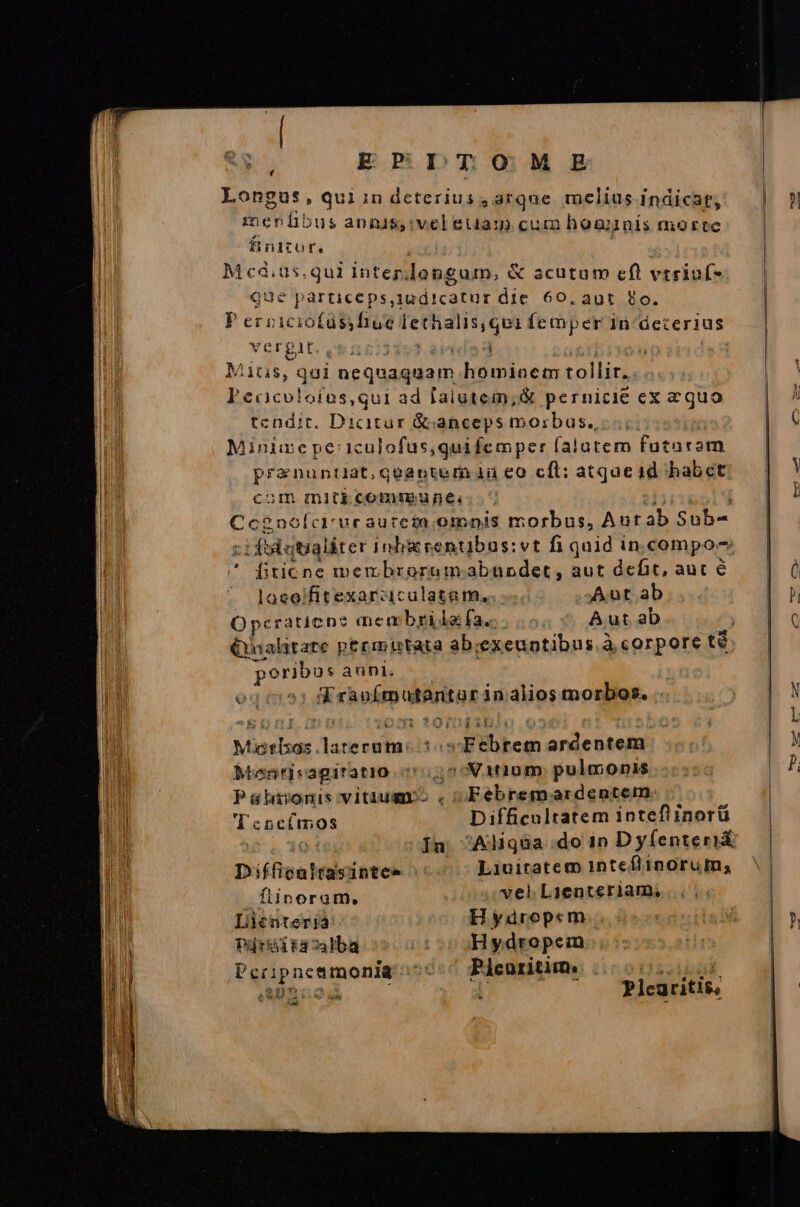 EPITOME
Longus, qui in deterius, atque melius indicat,
mensibus annis, vel etiam cum hominis morte
finitur.
Medius, qui inter longum, & acutum est vtriuſ-
que particeps, iudicatur die 60. aut 80.
Perniciosus, siue lethalis, qui semper in deterius
vergit.
Mitis, qui nequaquam hominem tollit.
Periculosus, qui ad salutem, & perniciē ex æquo
tendit. Dicitur & anceps morbus.
Minime periculosus, qui semper salutem futuram
prænuntiat, quantum in eo est: atque id habet
cum miti commune.
Cognoscitur autem omnis morbus, Aut ab Sub-
inhærentibus: vt si quid in compo-
sitione membrorum abundet, aut desit, aut è
loco sit exarticulatum. Aut ab
Operatione membri læsa. Aut ab
Qualitate permutata ab exeuntibus à corpore tē
poribus anni.
Transmutantur in alios morbos.
Morbos laterum Febrem ardentem
Mentis agitatio Vitium pulmonis
Pulmonis vitium Febrem ardentem
Tenesmos Difficultatem intestinorū
In Aliqua do in Dysenteriā
Difficultas inte- Liuitatem intestinorum,
stinorum. vel Lienteriam.
Lienteria Hydropem
Pituita alba Hydropem
Peripneumonia Pleuritim.
Pleuritis,